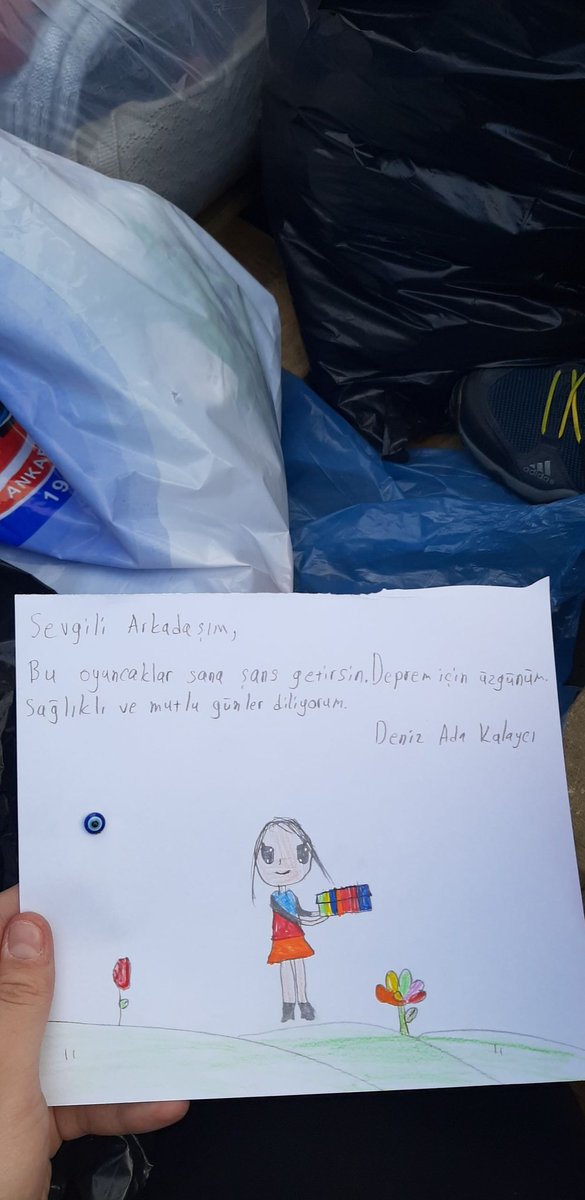 ANKA
19
adidas
Sevgili Arkadaşım,
Bu oyuncaklar sana şans getirsin. Deprem için üzgünüm.
Sağlıklı ve mutlu günler diliyorum.
Deniz Ada Kalaycı